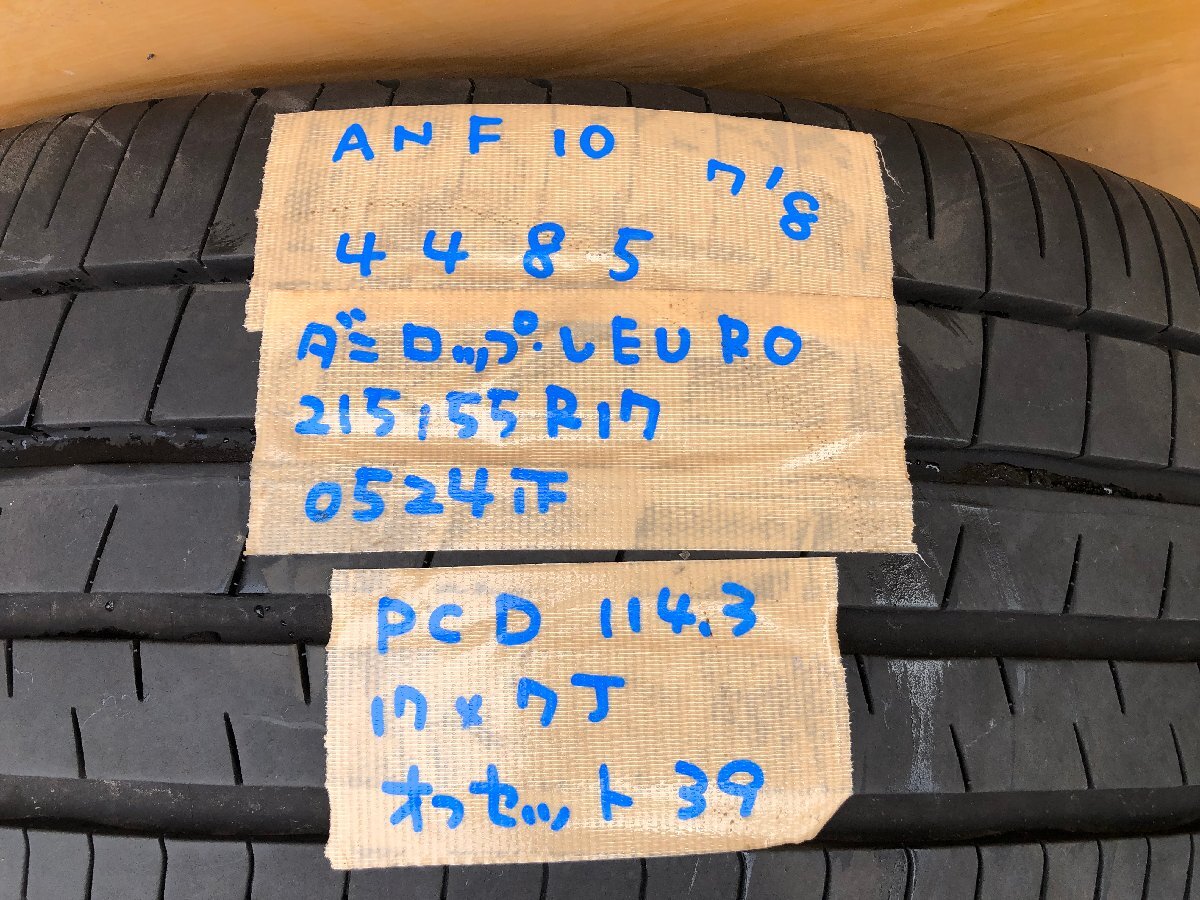 ANF 10
7'8
4485
ダンロップ・ レEURO
215/55R17
0524下
PCD 114.3
17×7J
オフセット 39